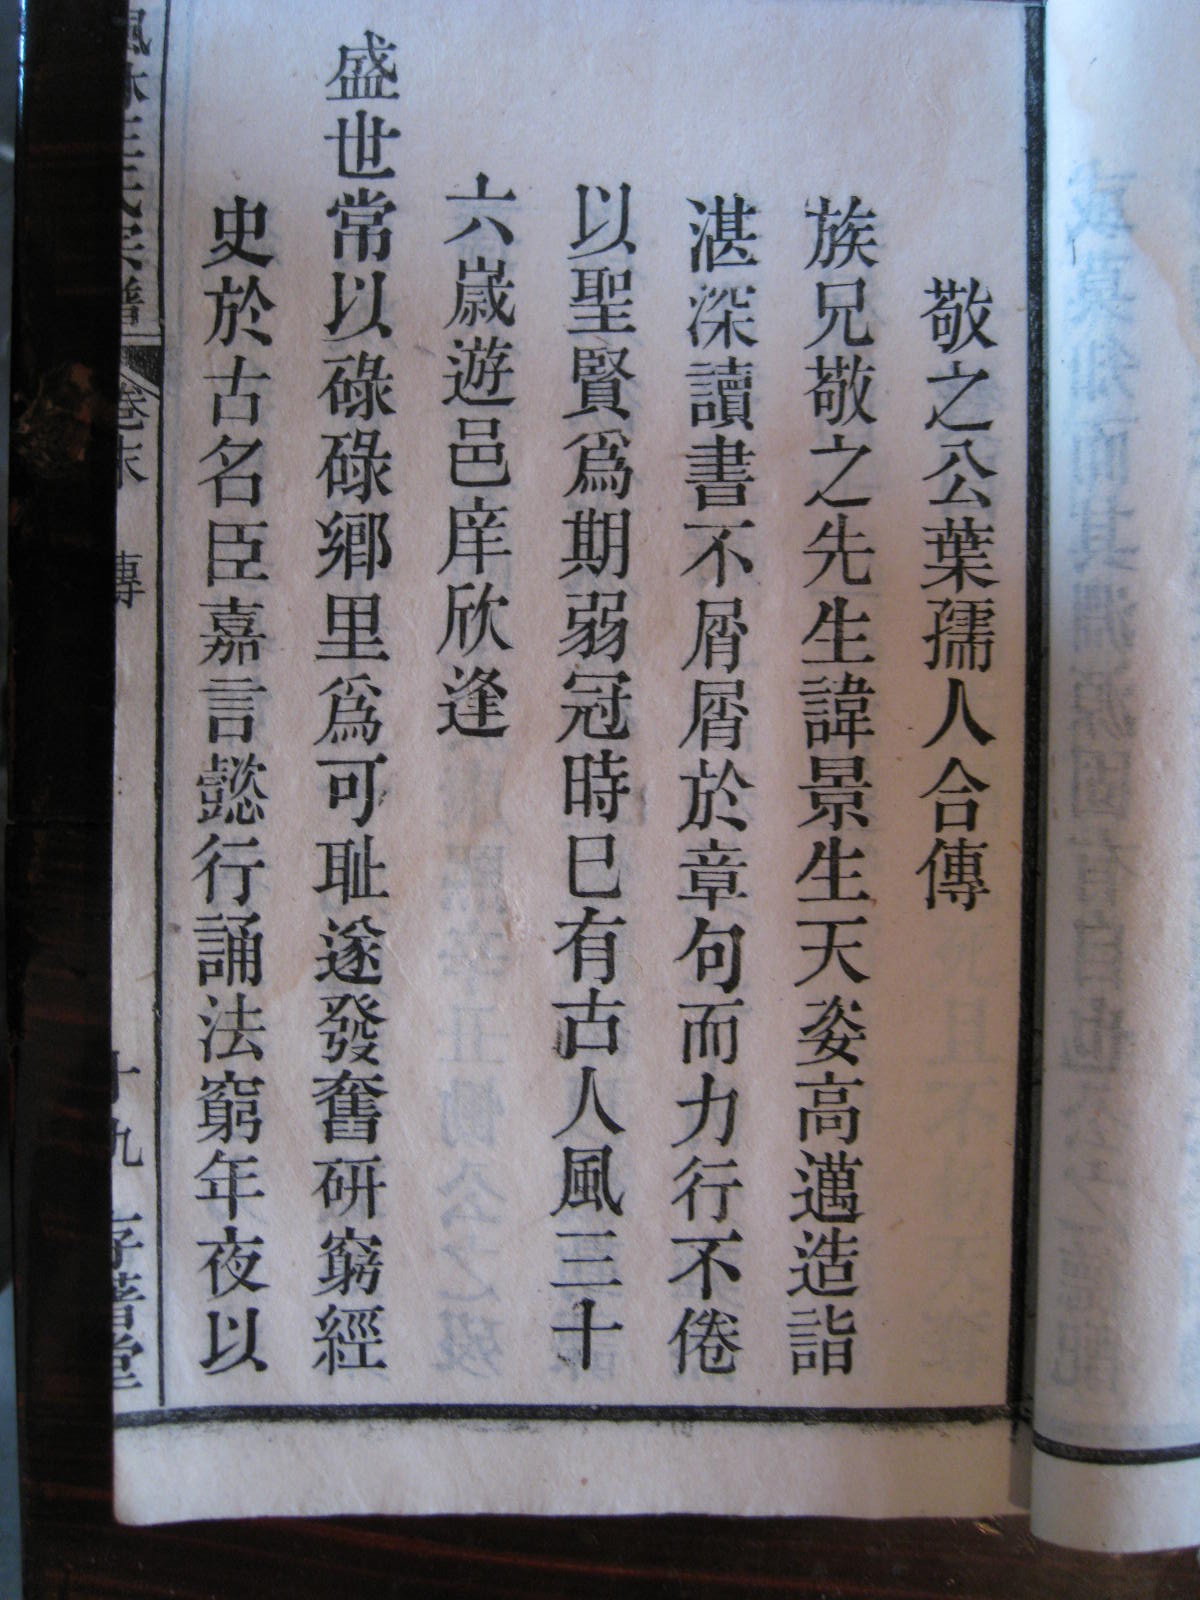 敬之公葉孺人合傳
族兄敬之先生諱景生天姿高邁造詣
湛深讀書不屑屑於章句而力行不倦
以聖賢爲期弱冠時巳有古人風三十
六嵗遊邑庠欣逢
盛世常以碌碌鄉里爲可耻遂發奮研窮經
史於古名臣嘉言懿行誦法窮年夜以
王氏宗譜
卷末
傳
十九